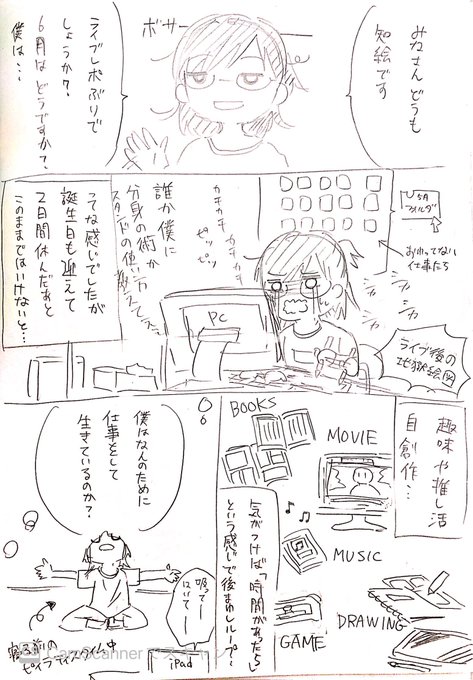 みなさんどうも
知絵です
ボサー
ライブレポぶりで
しょうか?
6月はどうですか?
僕は…
5月
フォルダ
おわってない
仕事たち
カキカキ
カキカキ
誰か僕に
分身の術か
スタンドの使い方
教えてくれ…
PC
ライブ後の
地獄絵図
こんな感じでしたが
誕生日も迎えて
2日間休んだあと
このままではいけないと…
趣味や推し活
自創作…
BOOKS
MOVIE
MUSIC
GAME
DRAWING
気がつけば「時間があったら」
という感じで後まわしループ…
僕はなんのために
仕事をして
生きているのか?
吸ってー
はいてー
iPad
寝る前の
ピラティスタイム中
CamScanner でスキャン